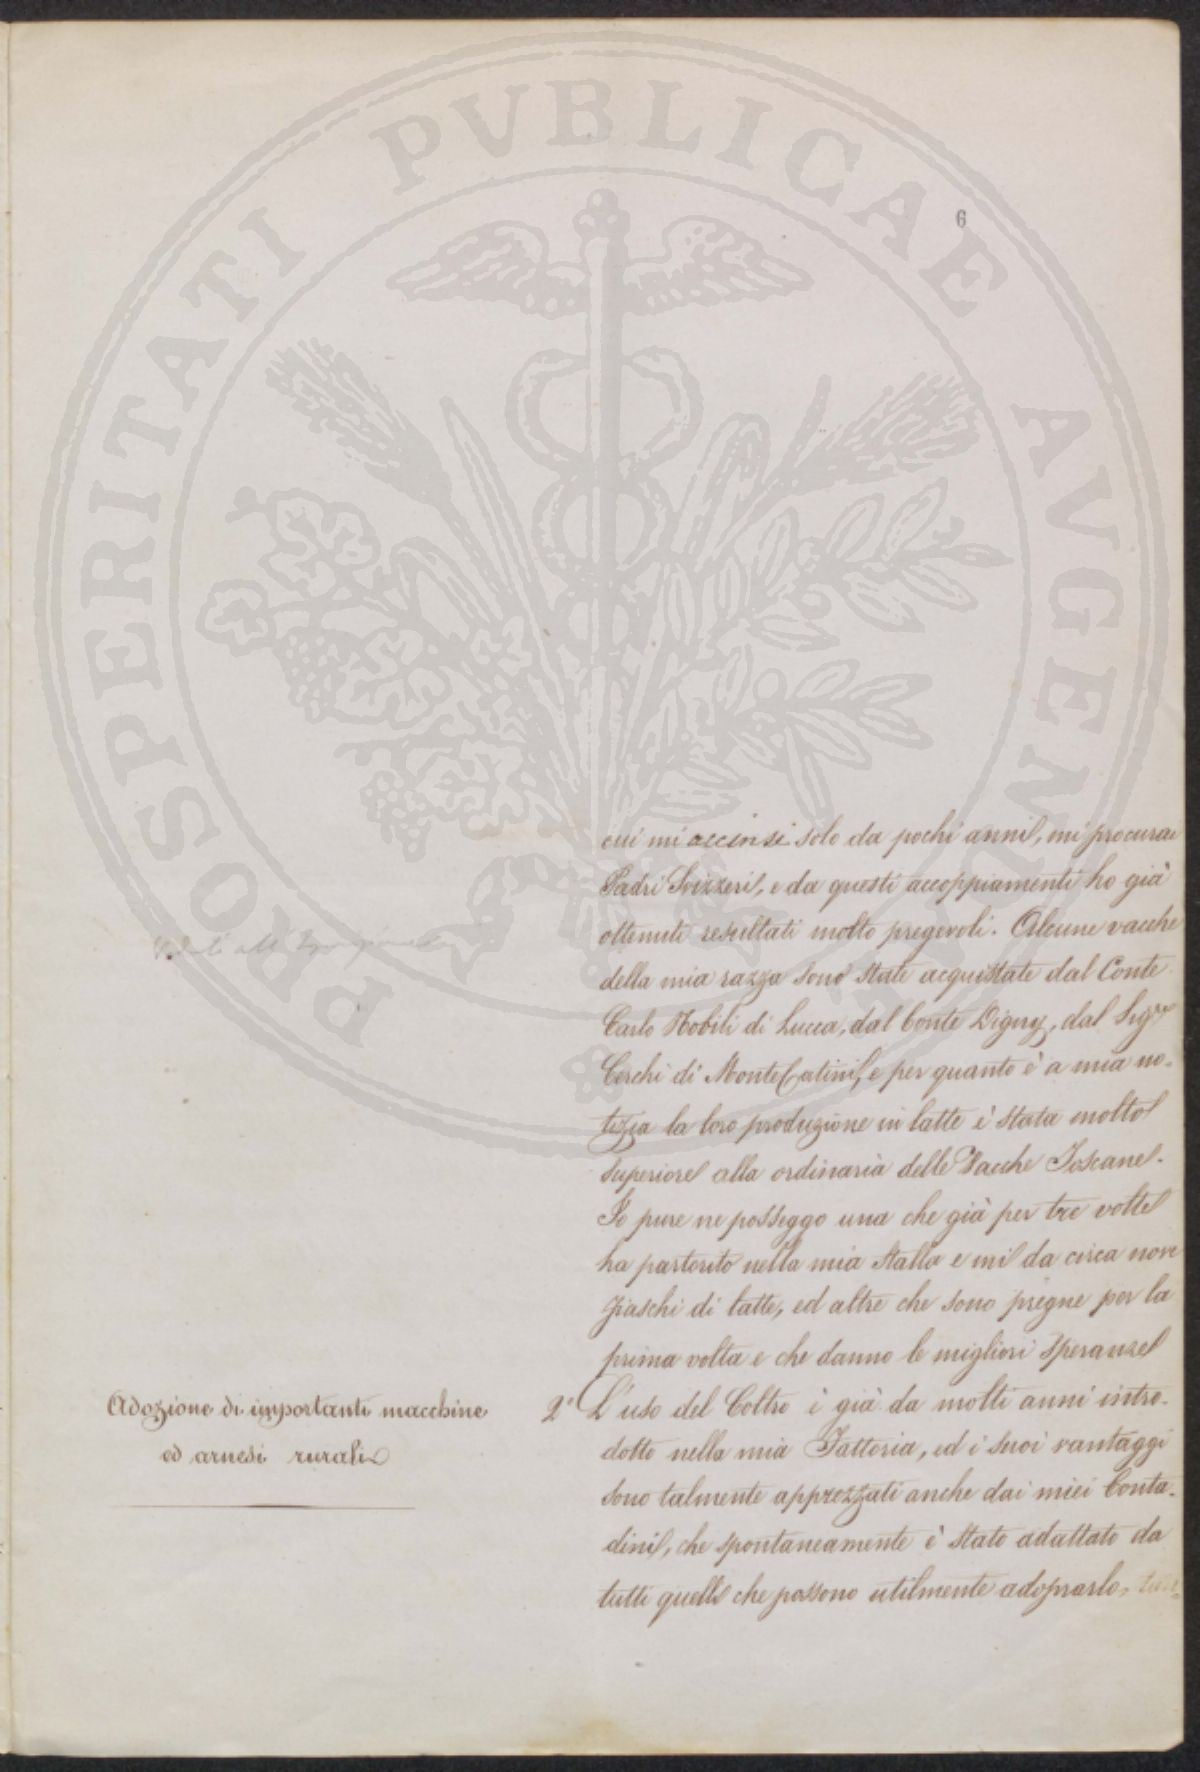 PROSPERITATI PVBLICAE AVGENDAE
6
cui mi accinsi solo da pochi anni, mi procurai
Padri Svizzeri, e da questi accoppiamenti ho già
ottenuti resultati molto pregevoli. Alcune vacche
della mia razza sono state acquistate dal Conte
Carlo Nobili di Lucca, dal Conte Digny, dal Sigre
Cerchi di MonteCatini, e per quanto è a mia no-
tizia la loro produzione in latte è stata molto
superiore alla ordinaria delle Vacche Toscane.
Io pure ne posseggo una che già per tre volte
ha partorito nella mia stalla e mi da circa nove
fiaschi di latte, ed altre che sono pregne per la
prima volta e che danno le migliori speranze
Adozione di importanti macchine
ed arnesi rurali
2° L'uso del Coltro è già da molti anni intro-
dotto nella mia Fattoria, ed i suoi vantaggi
sono talmente apprezzati anche dai miei Conta-
dini, che spontaneamente è stato adattato da
tutti quelli che possono utilmente adoprarlo,